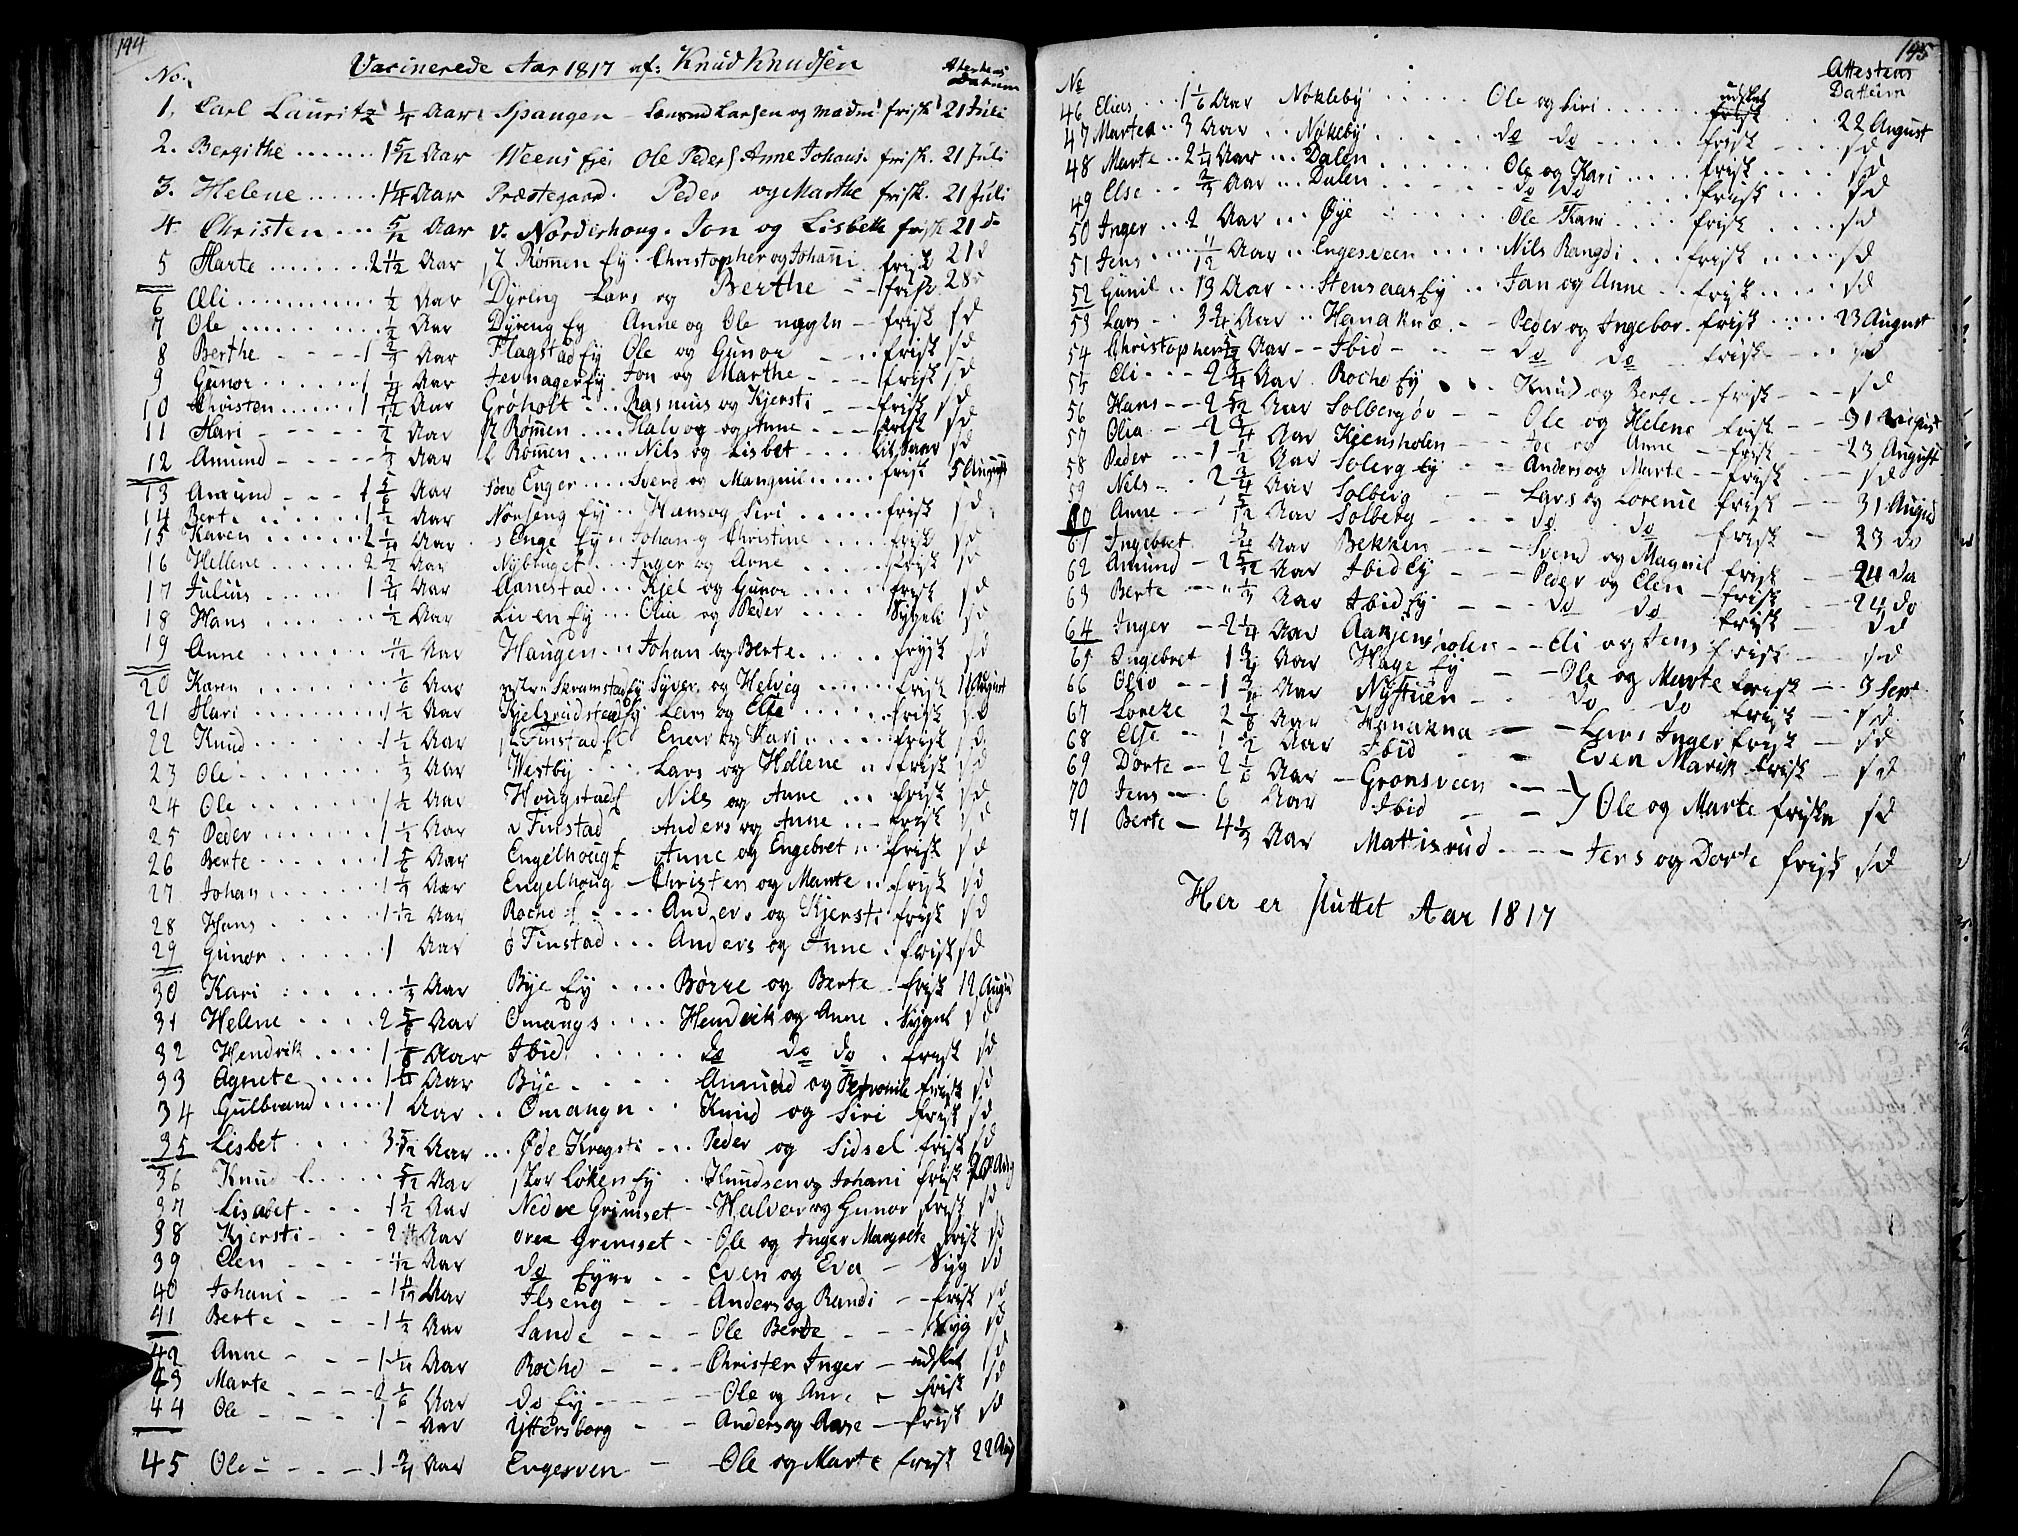 144
Vacinerede Aar 1817 af: Knud Knudsen
No. Attestens Datum
1. Carl Lauritz 1/4 Aar Spangen Larsen og frisk 21 Juli
2. Bergithe 1 5/12 Aar Weens Eje Ole Peders Anne Johans frisk. 21 Juli
3. Helene 1 1/4 Aar Præstegaard. Peder og Marthe frisk. 21 Juli
4. Christen 5/12 Aar v. Norderhoug. Jon og Lisbeth frisk 21 do
5 Marte 2 11/12 Aar Rømen Ey. Christopher og Johani frisk 21 d
6 Oli 1/2 Aar Dyreng Lars og Berthe frisk 28
7 Ole 1/2 Aar Dyreng Ey Anne og Ole frisk sd
8 Berthe 1 2/3 Aar Flagstad Ey Ole og Gunor frisk sd
9 Gunor 1 1/4 Aar Jevnager Ey Jon og Marthe frisk sd
10 Christen 1 Aar Grøholt Rasmus og Kjersti frisk sd
11 Kari 1/2 Aar Rømen Halvor og Anne frisk sd
12 Amund Aar Rømen Nils og Lisbet sd
13 Amund 1 5/6 Aar Enger Svend og Mangnil frisk 5 August
14 Berte 1 1/2 Aar Norseng Ey Hans og Siri frisk sd
15 Karen 2 1/4 Aar Enge Ey Johan og Christine frisk sd
16 Hellene 2 1/2 Aar Nybruget Inger og Arne frisk sd
17 Julius 1 3/4 Aar Aanestad Kjel og Gunor frisk sd
18 Hans 1/2 Aar Lieven Ey Olia og Peder Sygeli sd
19 Anne 11/12 Aar Haugen Johan og Berte frysk sd
20 Karen 1/6 Aar Skramstad Ey Syver og Helvig frisk 11 August
21 Kari 1 1/2 Aar Kjelsrudstad Ey Lars og Else frisk sd
22 Knud 1 1/2 Aar Finstad E Ener og Kari frisk sd
23 Ole 1/3 Aar Westby Lars og Hellene frisk sd
24 Ole 1 1/2 Aar Hougstad E Nils og Anne frisk sd
25 Peder 1 1/2 Aar v Finstad Anders og Anne frisk sd
26 Berte 1 5/6 Aar Engelhoug E Anne og Engebret frisk sd
27 Johan 1 Aar Engelhoug Christen og Marte frisk sd
28 Hans 1 1/12 Aar Rocho E Anders og Kjersti frysk sd
29 Gunor 1 Aar ø Finstad Anders og Anne frisk sd
30 Kari 1/3 Aar Bye Ey Börre og Berte frisk 12 August
31 Helene 2 5/6 Aar Omangs Hendrik og Anne Sygel sd
32 Hendrik 1 1/6 Aar Ibid do do do frisk sd
33 Agnete 1 Aar Bye Amund og Petronile frisk sd
34 Gulbrand 1 Aar Omangn Knud og Siri frisk sd
35 Lisbet 3 5/12 Aar Øde Kragsti Peder og Sidsel frisk sd
36 Knud 5/12 Aar stor Løken Ey Knudsen og Johani frisk 20 Aug
37 Lisabet 1 1/2 Aar Nedre Grimset Halvor og Gunor frisk sd
38 Kjersti 2 Aar øvre Grimset Ole og Inger Margrete frisk sd
39 Elen 11/12 Aar do Even og Eva Syg sd
40 Johani 1 Aar Ilseng Anders og Randi frisk sd
41 Berte 1 1/2 Aar Sande Ole Berte Syg sd
42 Anne 1 Aar Rocho Christen Inger udslet sd
43 Marte 2 1/6 Aar do Ey Ole og Anne frisk sd
44 Ole 1 Aar Yttersborg Anders og Aase frisk sd
45 Ole 1 3/4 Aar Engesven Ole og Marte frisk 22 Aug
145
No Attestens Datum
46 Elias 1 1/6 Aar Nøkleby Ole og Siri udslet 22 August
47 Martea 3 Aar Nøkeby do do frisk sd
48 Marte 2 1/4 Aar Dalen Ole og Kari frisk sd
49 Else 2/3 Aar Dalen do do frisk sd
50 Inger 2 Aar Øye Ole Kari frisk sd
51 Jens 11/12 Aar Engesveen Nils Rangdi frisk sd
52 Gunil 13 Aar Stensaas Ey Jan og Anne frisk sd
53 Lars 3 3/4 Aar Hanaknæ Peder og Ingebor frisk 23 August
54 Christopher Aar Ibid do do frisk sd
55 Eli 2 3/4 Aar Rocho Ey Knud og Berte frisk sd
56 Hans 2 5/12 Aar Solberg Ole og Helene frisk 31 August
57 Olia 2 3/4 Aar Kjensholen og Anne frisk 23 August
58 Peder 1 1/2 Aar Solerg Ey Anders og Marte frisk sd
59 Nils 2 3/4 Aar Solberg Lars og Lorense frisk 31 August
60 Anne 5/12 Aar Solberg do do frisk 23 do
61 Ingebret 3/4 Aar Bekken Svend og Magnil frisk 24 do
62 Amund 2 5/12 Aar Ibid Ey Peder og Elen frisk 24 do
63 Berte 1/3 Aar Ibid Ey do do frisk do
64 Inger 2 1/4 Aar Aasjensholen Eli og Jens frisk sd
65 Ingebret 1 3/4 Aar Hage Ey Ole og Marte frisk 3 Sept
66 Oliv 1 3/4 Aar Nystuen do do frisk sd
67 Loreze 2 1/6 Aar Hanakna Lars Inger frisk sd
68 Else 1 1/2 Aar Ibid Even Marih frisk sd
69 Dorte 2 1/6 Aar Gronsveen
70 Jens 6 Aar Ibid Ole og Marte friske sd
71 Berte 4 1/3 Aar Mattisrud Jens og Dorte frisk sd
Her er sluttet Aar 1817